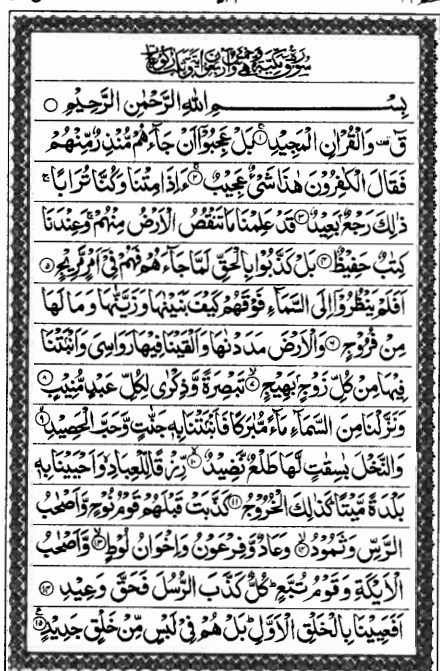 بِسْــــــمِ اللّٰهِ الرَّحْمٰنِ الرَّحِیْمِ ○
قٓ ۚ وَالْقُرْاٰنِ الْمَجِیْدِ ۱ بَلْ عَجِبُوْۤا اَنْ جَآءَهُمْ مُّنْذِرٌ مِّنْهُمْ
فَقَالَ الْكٰفِرُوْنَ هٰذَا شَیْءٌ عَجِیْبٌ ۲ ءَاِذَا مِتْنَا وَكُنَّا تُرَابًا ۚ
ذٰلِكَ رَجْعٌۢ بَعِیْدٌ ۳ قَدْ عَلِمْنَا مَا تَنْقُصُ الْاَرْضُ مِنْهُمْ ۚ وَعِنْدَنَا
كِتٰبٌ حَفِیْظٌ ۴ بَلْ كَذَّبُوْا بِالْحَقِّ لَمَّا جَآءَهُمْ فَهُمْ فِیْۤ اَمْرٍ مَّرِیْجٍ ۵
اَفَلَمْ یَنْظُرُوْۤا اِلَى السَّمَآءِ فَوْقَهُمْ كَیْفَ بَنَیْنٰهَا وَزَیَّنّٰهَا وَمَا لَهَا
مِنْ فُرُوْجٍ ۶ وَالْاَرْضَ مَدَدْنٰهَا وَاَلْقَیْنَا فِیْهَا رَوَاسِیَ وَاَنْۢبَتْنَا
فِیْهَا مِنْ كُلِّ زَوْجٍۭ بَهِیْجٍ ۷ تَبْصِرَةً وَّذِكْرٰى لِكُلِّ عَبْدٍ مُّنِیْبٍ ۸
وَنَزَّلْنَا مِنَ السَّمَآءِ مَآءً مُّبٰرَكًا فَاَنْۢبَتْنَا بِهٖ جَنّٰتٍ وَّحَبَّ الْحَصِیْدِ ۹
وَالنَّخْلَ بٰسِقٰتٍ لَّهَا طَلْعٌ نَّضِیْدٌ ۱۰ رِّزْقًا لِّلْعِبَادِ ۙ وَاَحْیَیْنَا بِهٖ
بَلْدَةً مَّیْتًا ؕ كَذٰلِكَ الْخُرُوْجُ ۱۱ كَذَّبَتْ قَبْلَهُمْ قَوْمُ نُوْحٍ وَّاَصْحٰبُ
الرَّسِّ وَثَمُوْدُ ۱۲ وَعَادٌ وَّفِرْعَوْنُ وَاِخْوَانُ لُوْطٍ ۱۳ وَّاَصْحٰبُ
الْاَیْكَةِ وَقَوْمُ تُبَّعٍ ؕ كُلٌّ كَذَّبَ الرُّسُلَ فَحَقَّ وَعِیْدِ ۱۴
اَفَعَیِیْنَا بِالْخَلْقِ الْاَوَّلِ ؕ بَلْ هُمْ فِیْ لَبْسٍ مِّنْ خَلْقٍ جَدِیْدٍ ۱۵